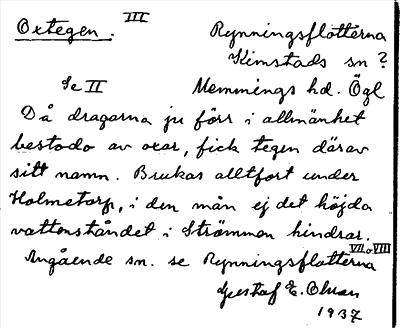 Oxtegen. III
Rynningsflottorna
Kimstads sn?
Se II
Memmings hd. Ögl
Då dragarna ju förr i allmänhet
bestodo av oxar, fick tegen därav
sitt namn. Brukas alltfort under
Holmetorp, i den mån ej det höjda
vattenståndet i Strömmen hindrar.
Angående sn. se Rynningsflottorna VII o VIII
Gustaf E. Olsson
1937